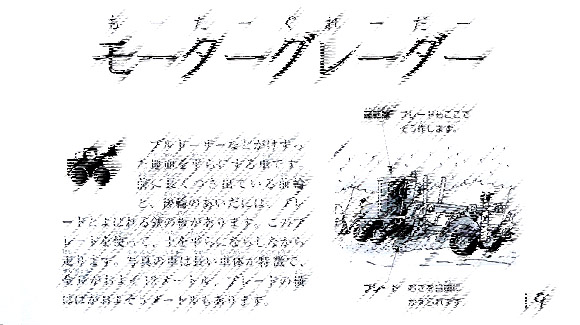 もーたーぐれーだー
モーターグレーダー
運転席 ブレードもここで
そう作します。
ブルドーザーなどがけずっ
た地面を平らにする車です。
前に長くつき出ている前輪
と、後輪のあいだには、ブレ
ードとよばれる鉄の板があります。このブ
レードを使って、土を平らにならしながら
走ります。写真の車は長い車体が特徴で、
全長がおよそ12メートル、ブレードの横
はばがおよそ メートルもあります。
ブレード むきを自由に
かえられます。
19